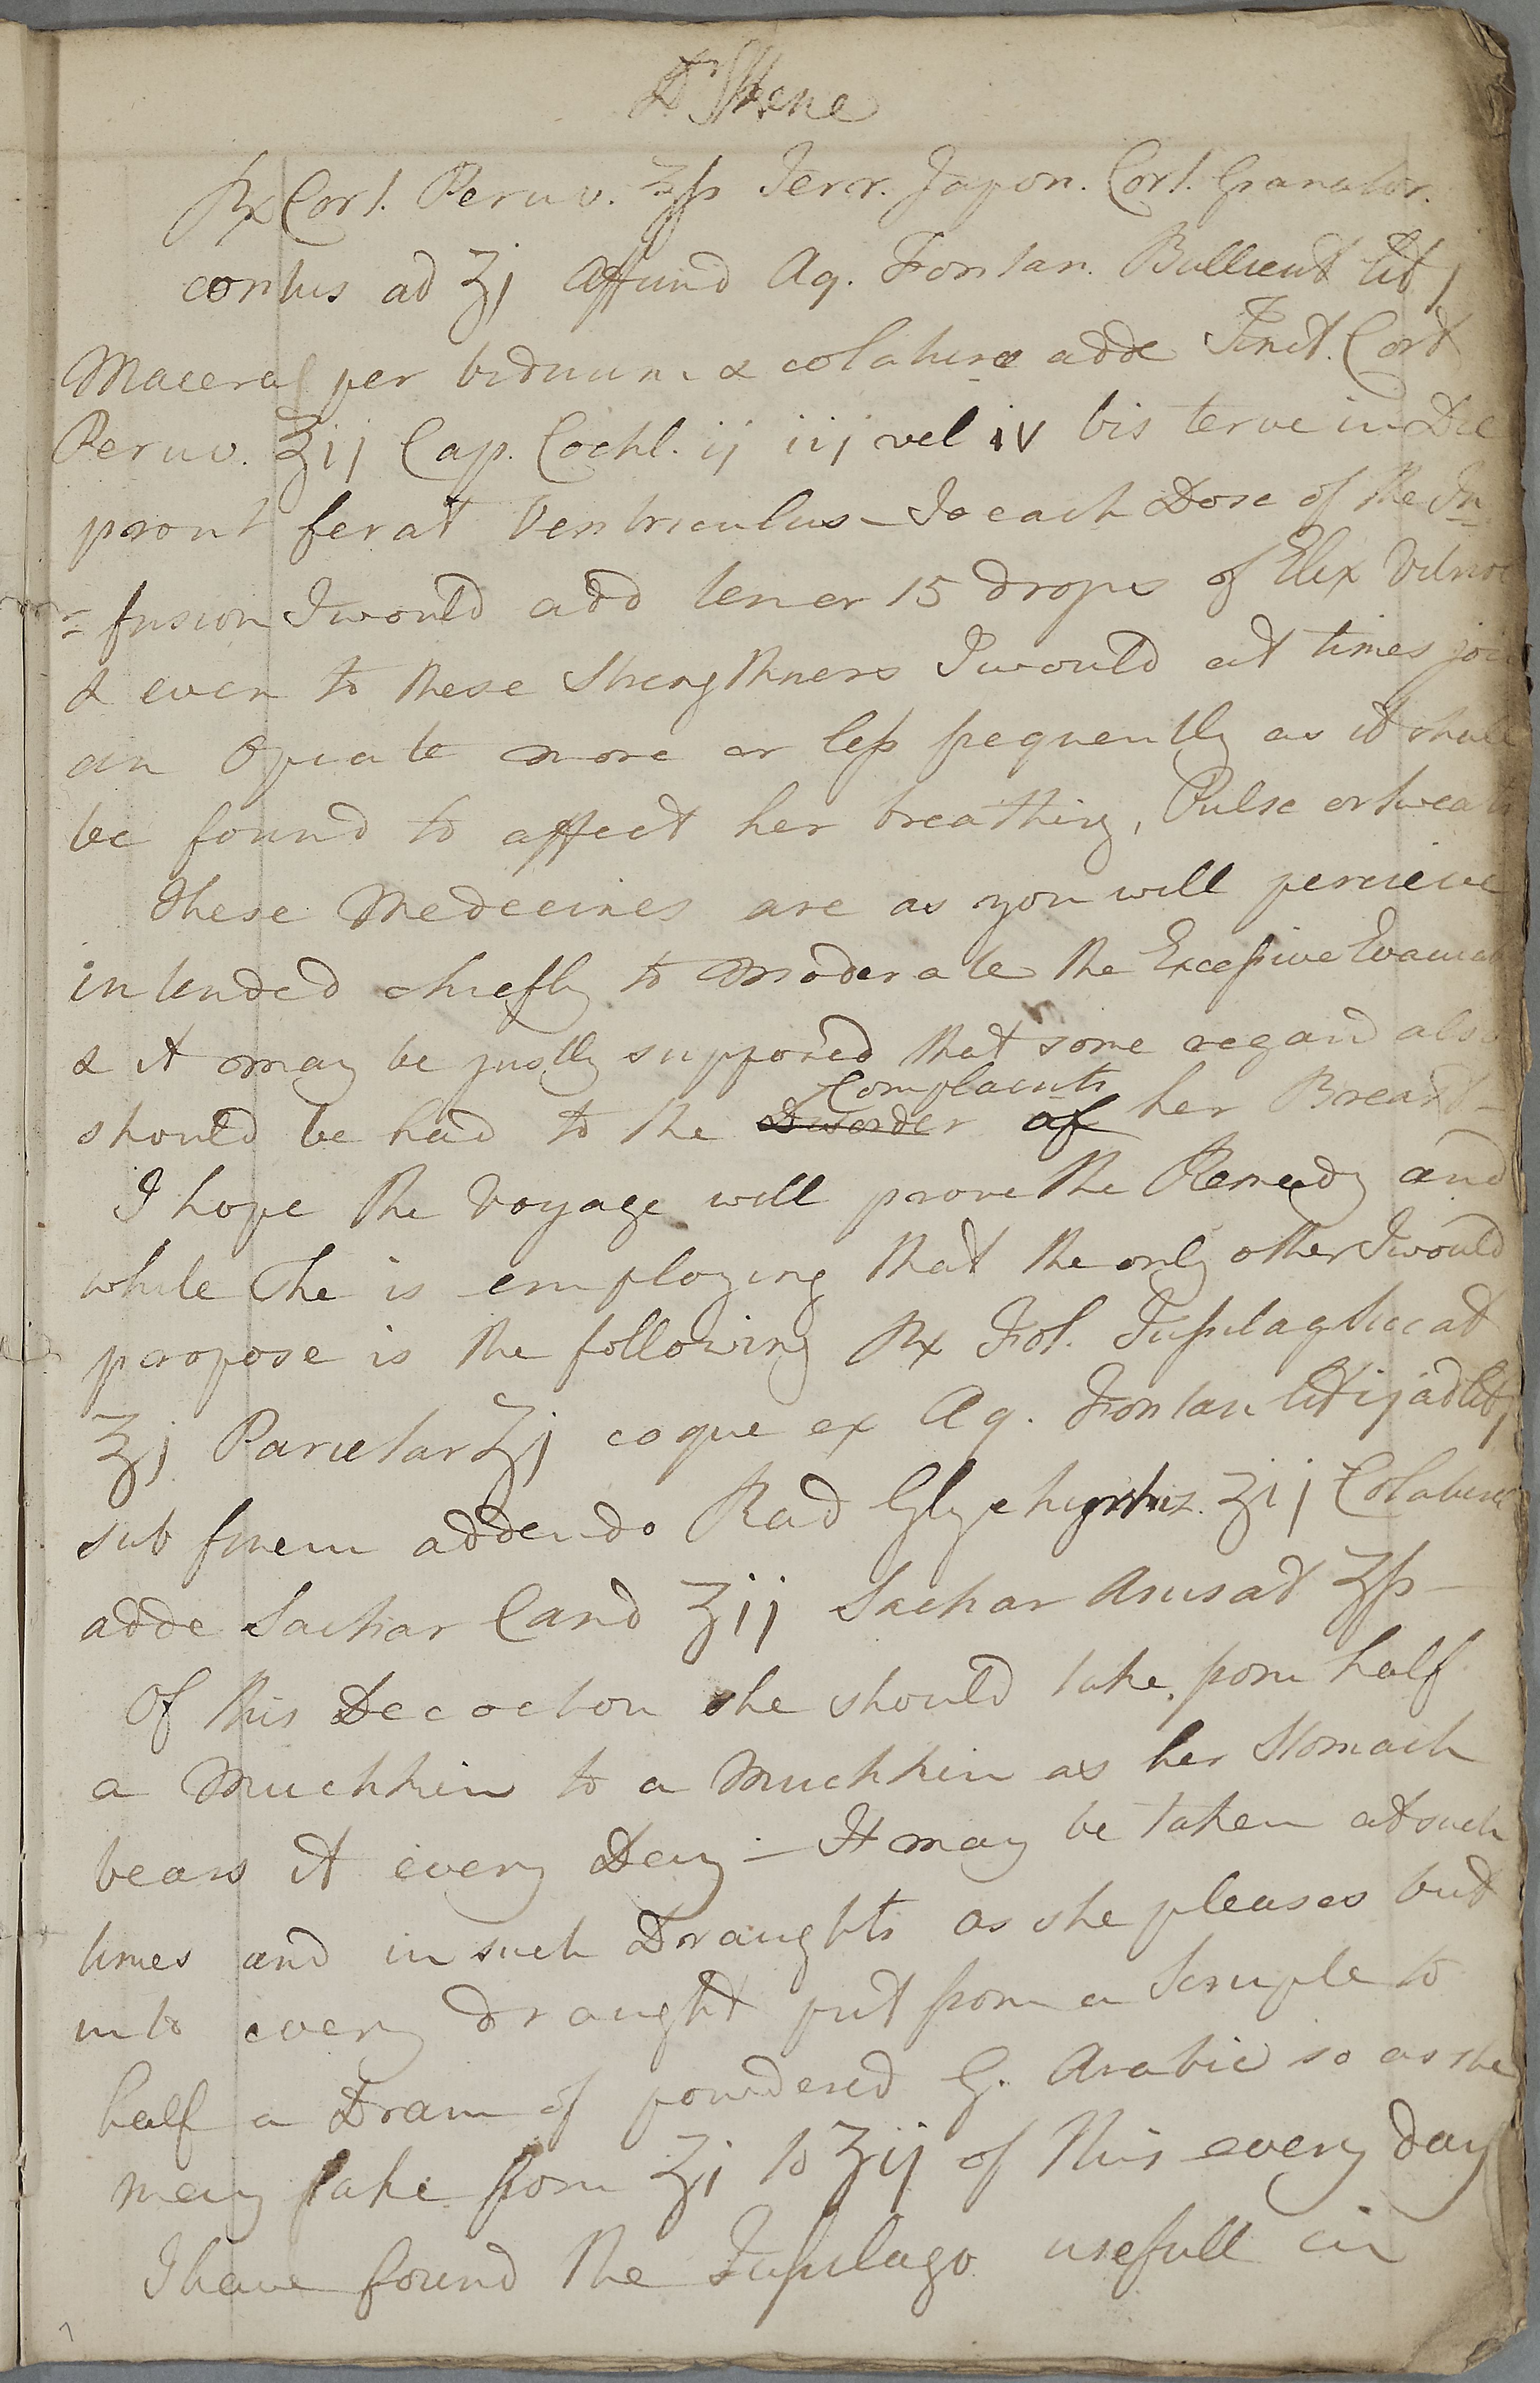 Dr Skene
Rx Cort. Peruv. ℥ss Terr. Japon. Cort. Granator.
contus ad ʒj affund Aq. Fontan. Bullient lib j
Macera per biduum & colaturæ adde Tinct. Cort
Peruv. ℥ij Cap. Cochl. ij iij vel iv bis terve in Die
prout ferat Ventriculus – To each Dose of the In
= fusion I would add ten or 15 drops of Elix Vitriol
& even to these Strengthners I would at times join
an Opiate more or less frequently as it shall
be found to affect her breathing, Pulse or sweats
These Medecines are as you will percieve
intended chiefly to moderate the Excessive Evacuat
& it may be justly supposed that some regard also
should be had to the Disorder Complaints of her Breast –
I hope the Voyage will prove the Remedy and
while She is employing that the only other I would
propose is the following Rx Fol. Tussilag Siccat
℥j Parietar ℥j coque ex Aq. Fontan lib ij ad lib j
sub finem addendo Rad Glychirrhiz. ʒij Colaturæ
adde Sachar Cand ʒij Sachar Anisat ʒss –
Of this Decoction she should take from half
a Muchkin to a Muchkin as her Stomach
bears it every Day – It may be taken at such
times and in such Draughts as she pleases but
into every draught put from a Scruple to
half a Dram of powdered G. Arabic so as she
may take from ʒj to ʒij of this every day
I have found the Tussilago usefull in